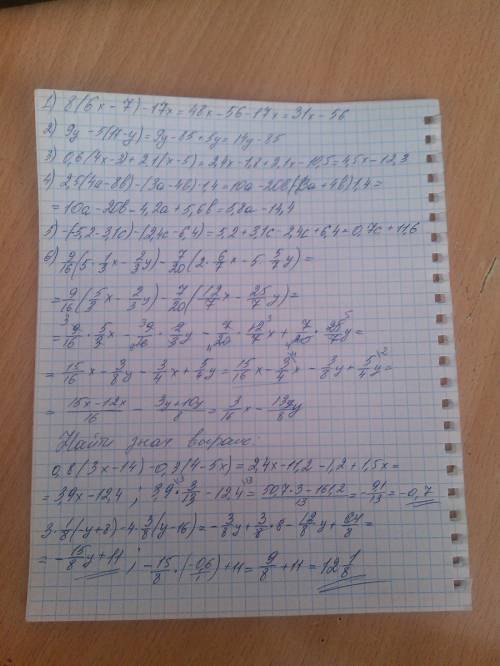 1) 8(6x-7)-17x=48x-56-17x=31x-56
2) 9y-5(17-y)=9y-85+5y=14y-85
3) 0,6(4x-3)+2,1(x-5)=2,4x-1,8+2,1x-10,5=4,5x-12,3
4) 2,5(4a-8b)-(3a-4b)·1,4=10a-20b+(-3a+4b)1,4=
=10a-20b-4,2a+5,6b=5,8a-14,4
5) -(-5,2-3,1c)-(2,4c-6,4)=5,2+3,1c-2,4c+6,4=0,7c+11,6
6) 9/16(5·1/3x-2/3y)-7/20(2·6/7x-5·5/7y)=
=9/16(5/3x-2/3y)-7/20(12/7x-25/7y)=
=9/16·5/3x-9/16·2/3y-7/20·12/7x+7/20·25/7y=
=15/16x-3/8y-3/4x+5/4y=15/16x-3/4x-3/8y+5/4y=
=15x-12x/16-3y+10y/8=3/16x-13y/8
Найти знач выраж:
0,8(3x-14)-0,3(4-5x)=2,4x-11,2-1,2+1,5x=
=3,9x-12,4; 3,9·3/13-12,4=50,7·3-161,2/13=-91/13=-0,7
3·1/8(-y+8)-4·3/8(y-16)=-3/8y+3/8·8-12/8y+64/8=
=-15/8y+11; -15/8·(-0,6/1)+11=9/8+11=12 1/8